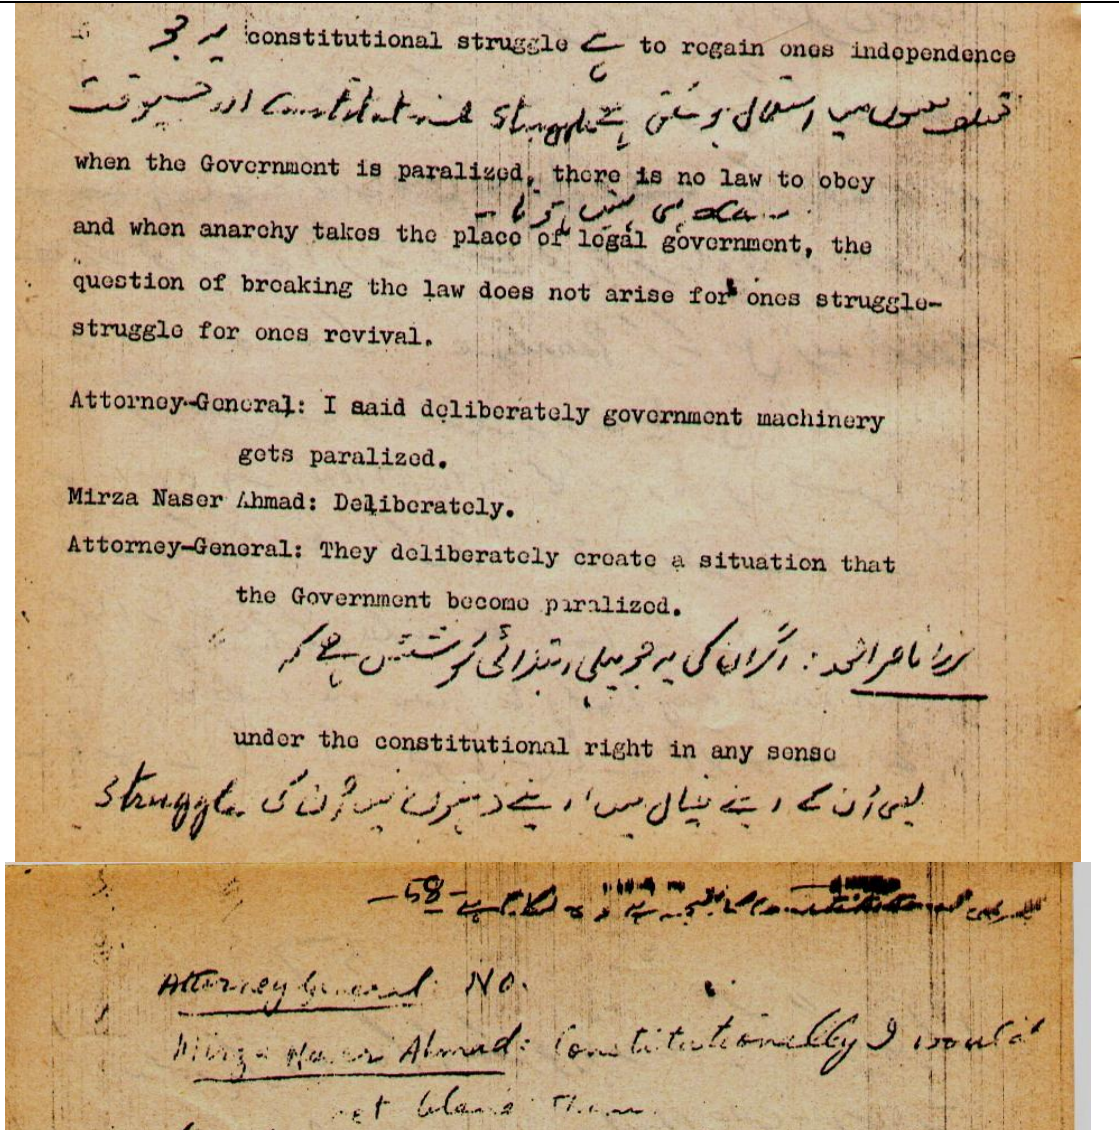 یہ جو constitutional struggle ہے to regain ones independence
مختلف معنوں میں استعمال ہو سکتی ہے Constitutional struggle اور جسوقت
when the Government is paralized, there is no law to obey
and when anarchy takes the place of legal government, the
question of breaking the law does not arise for ones struggle-
struggle for ones revival.
Attorney-General: I said deliberately government machinery
gets paralized.
Mirza Naser Ahmad: Deliberately.
Attorney-General: They deliberately create a situation that
the Government become paralized.
مرزا ناصر احمد: اگر ان کی یہ جو پہلی ابتدائی کوشش ہے کہ
under the constitutional right in any sense
یعنی ان کے اپنے خیال میں، اپنے ذہنوں میں ان کی struggle
-58-
Attorney General: No.
Mirza Naser Ahmad: Constitutionally I would
not blame them